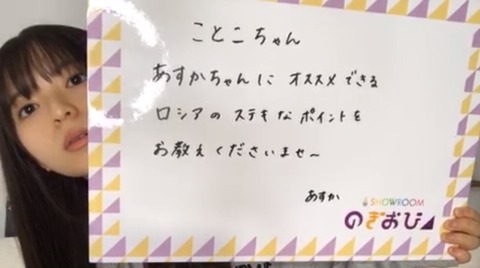 ことこちゃん
あすかちゃんに オススメできる
ロシアの ステキなポイントを
お教えくださいませ〜
あすか
SHOWROOM
のぎおび